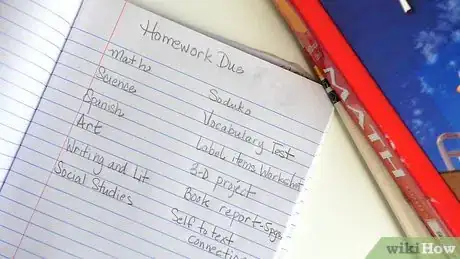 Homework Due
Maths Soduko
Science Vocabulary Test
Spanish Label items
Art 3-D project
Writing and Lit Book report-5pgs
Social Studies Self to text
MATH
wikiHow